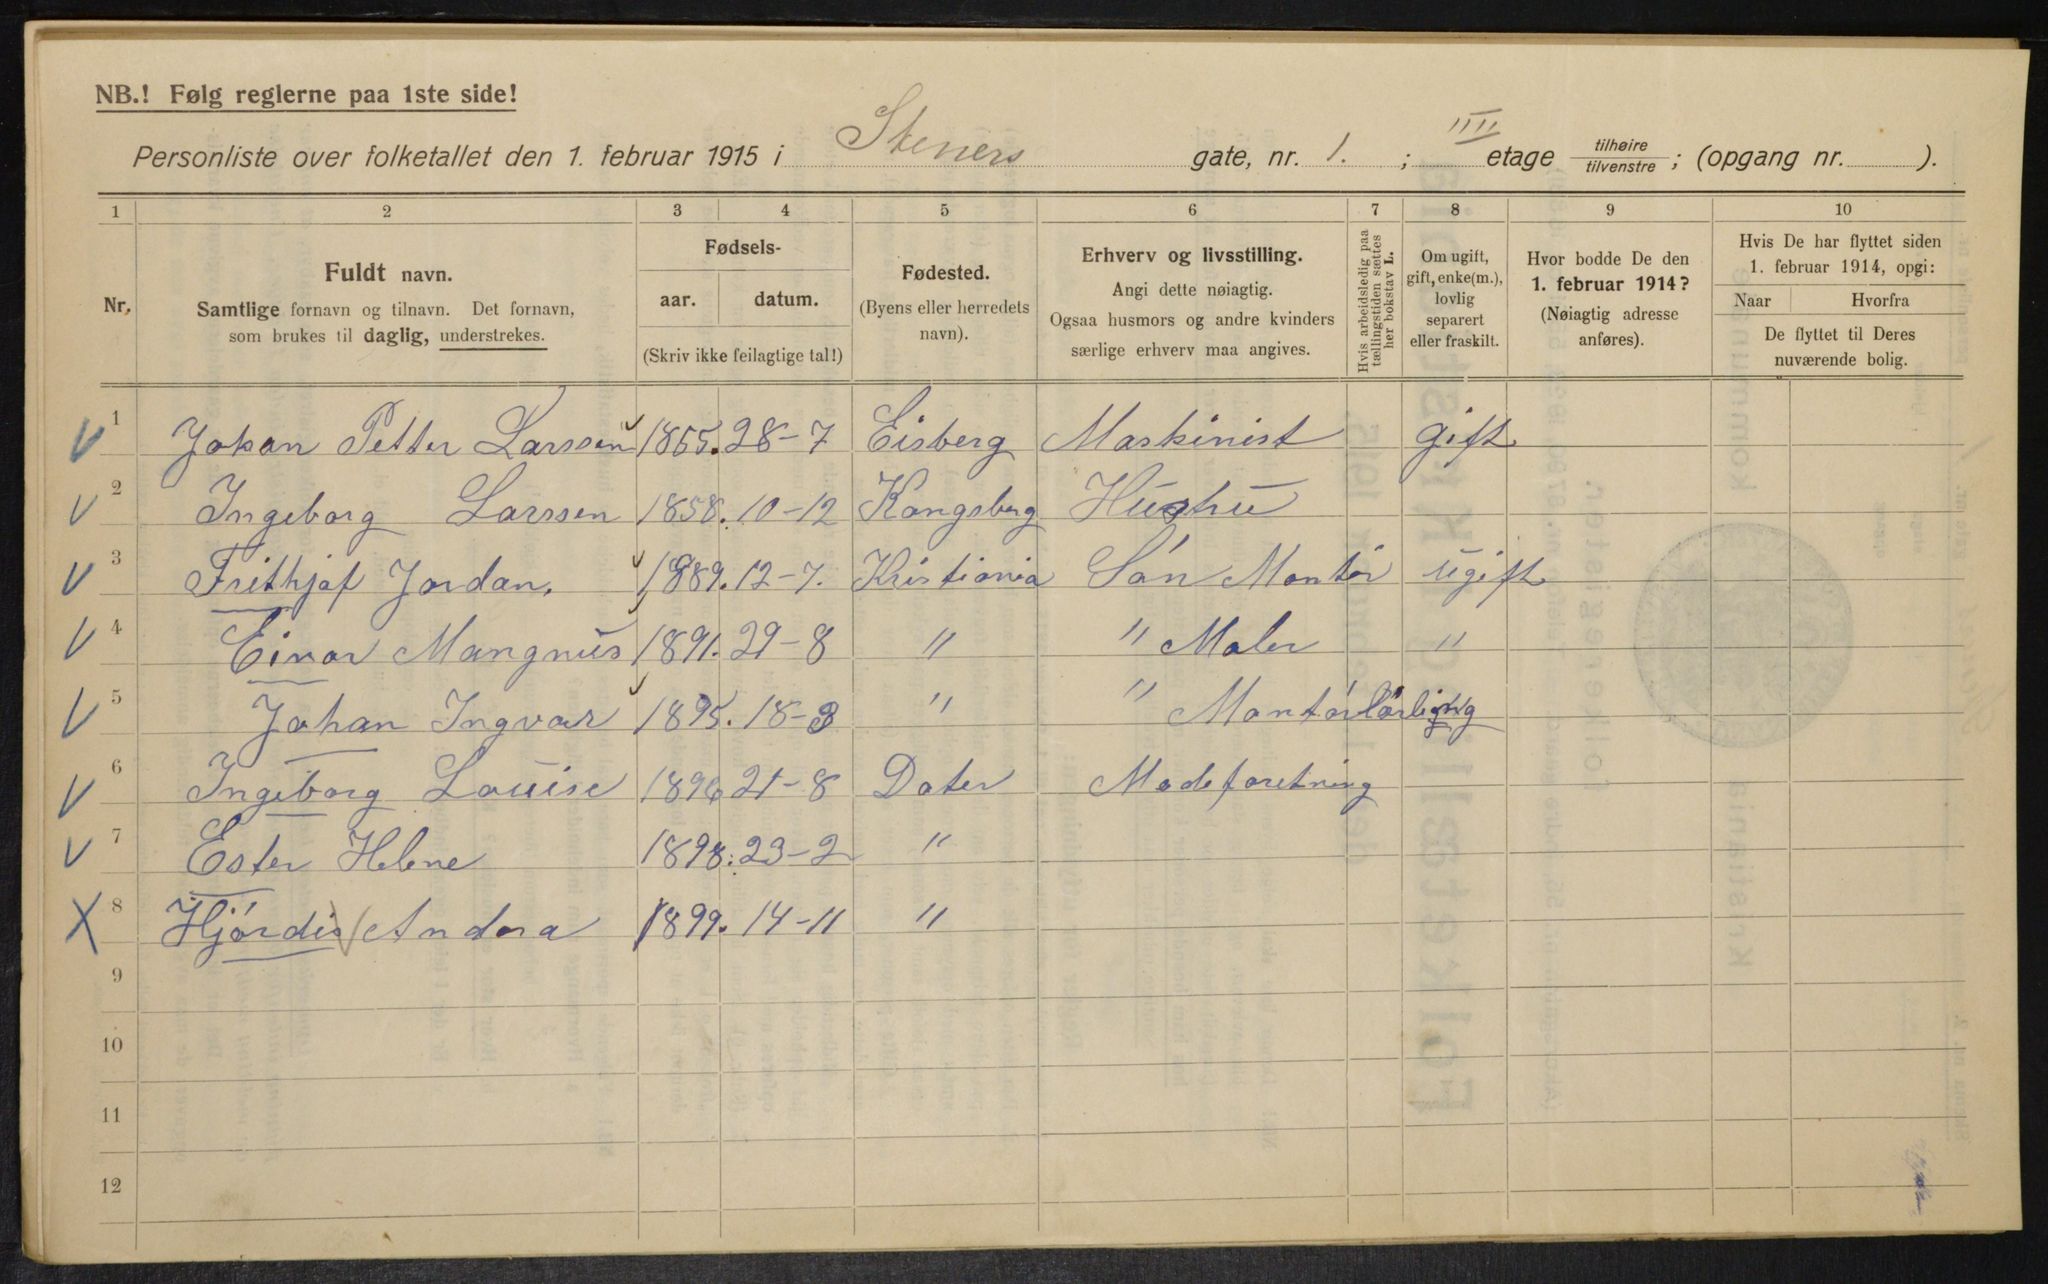 NB.! Følg reglerne paa 1ste side!
Personliste over folketallet den 1. februar 1915 i Steners gate, nr. 1. ; IIII etage tilhøire tilvenstre ; (opgang nr. ).
1 2 3 4 5 6 7 8 9 10
Nr.
Fuldt navn.
Samtlige fornavn og tilnavn. Det fornavn,
som brukes til daglig, understrekes.
Fødsels-
aar. datum.
(Skriv ikke feilagtige tal!)
Fødested.
(Byens eller herredets
navn).
Erhverv og livsstilling.
Angi dette nøiagtig.
Ogsaa husmors og andre kvinders
særlige erhverv maa angives.
Hvis arbeidsledig paa
tællingstiden sættes
her bokstav L.
Om ugift,
gift, enke(m.),
lovlig
separert
eller fraskilt.
Hvor bodde De den
1. februar 1914?
(Nøiagtig adresse
anføres).
Hvis De har flyttet siden
1. februar 1914, opgi:
Naar Hvorfra
De flyttet til Deres
nuværende bolig.
1 Johan Petter Larssen 1855. 28-7 Eisberg Maskinist gift
2 Ingeborg Larssen 1858. 10-12 Kongsberg Hustru
3 Frithjof Jordan. 1889. 12-7. Kristiania Són Montór ugift
4 Einar Mangnus 1891. 29-8 " " Maler "
5 Johan Ingvar 1895. 18-3 " " Montórlórling
6 Ingeborg Louise 1896 21-8 Dater Modeforetning
7 Ester Helene 1898. 23-2 "
8 Hjórdis Andora 1899. 14-11 "
9
10
11
12